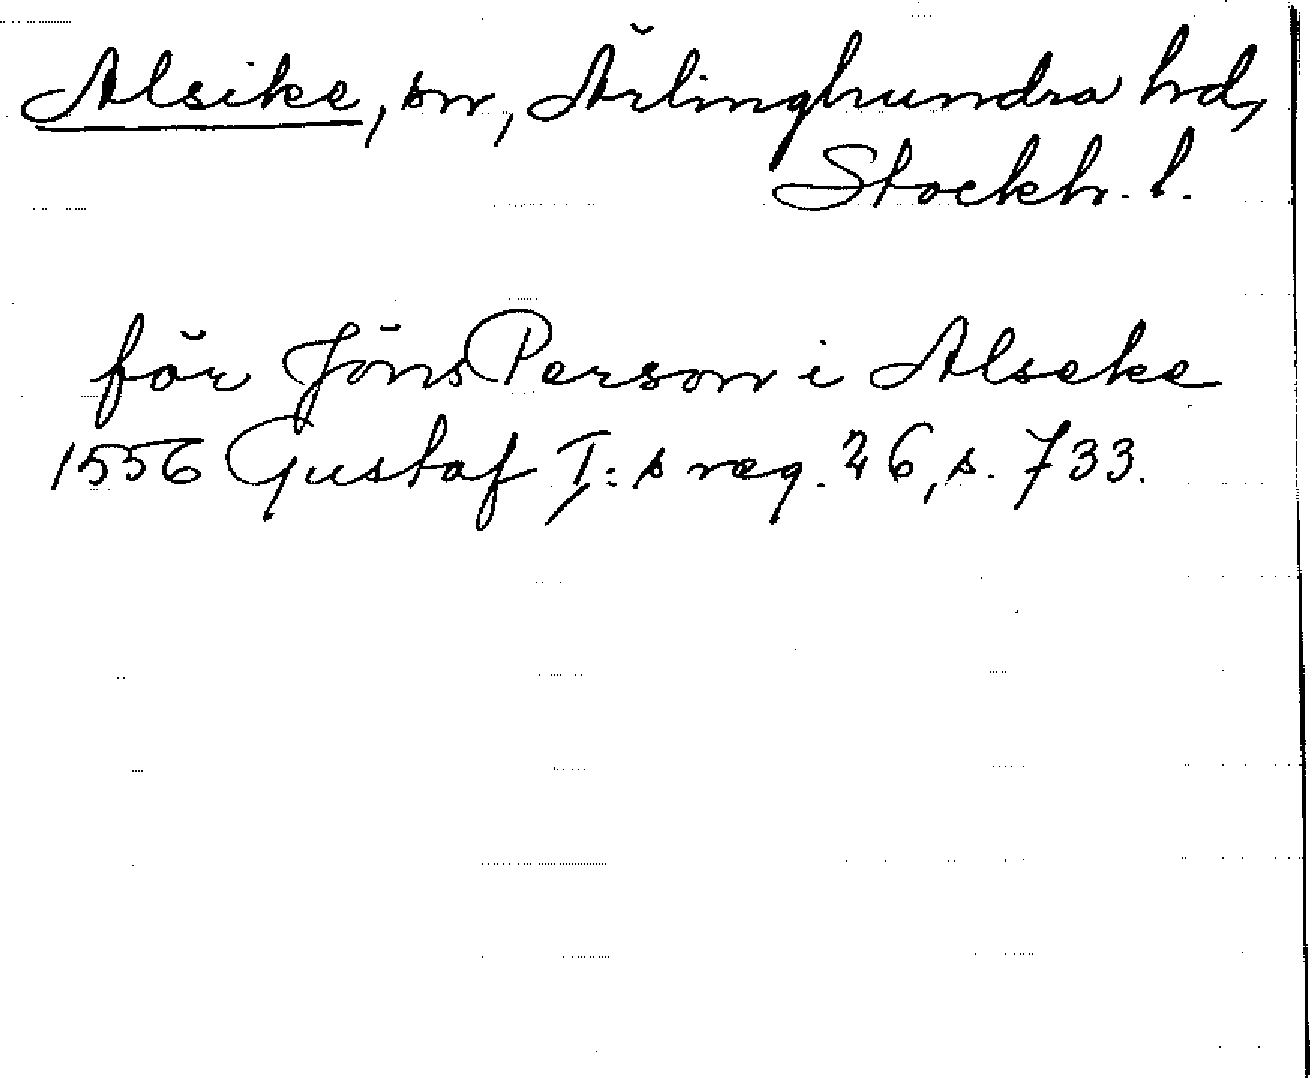 Alsike, sn, Ärlinghundra hd,
Stockh. l.
för Jöns Person i Alseke
1556 Gustaf I:s reg. 26, s. 733.